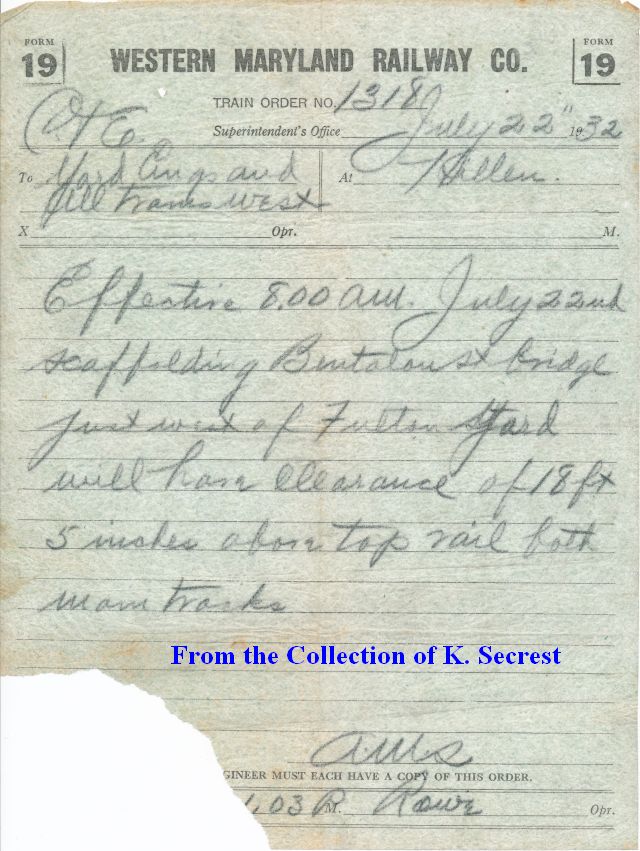 FORM 19 WESTERN MARYLAND RAILWAY CO. FORM 19
TRAIN ORDER NO. 1318
C & E. Superintendent's Office July 22" 1932
To Yard Engs and At Hillen.
All trains west
X Opr. M.
Effective 8.00 am. July 22nd
scaffolding Bentalou st bridge
just west of Fulton Yard
will have clearance of 18 ft
5 inches above top rail both
main tracks
From the Collection of K. Secrest
AMS
GINEER MUST EACH HAVE A COPY OF THIS ORDER.
1.03 P. M. Rowe Opr.